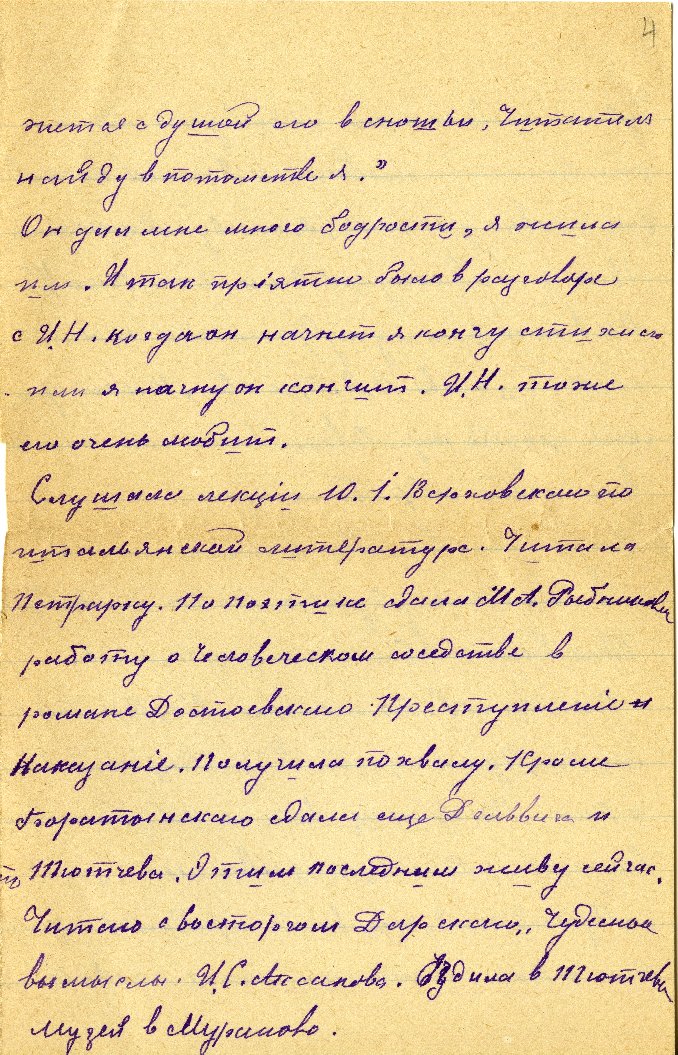 4
жется с душой его в сношеньи, Читателя
найду в потомстве я."
Он дал мне много бодрости, я жила
им. И так прiятно было в разговоре
с И.Н. когда он начнет я кончу стих его
или я начну он кончит. И.Н. тоже
его очень любит.
Слушала лекцiи Ю.I. Верховского по
итальянской литературе. Читала
Петрарку. По поэтике сдала М.А. Рыбниковой
работу о Человеческом соседстве в
романе Достоевскаго Преступленiе и
Наказанiе. Получила похвалу. Кроме
Боратынскаго сдала еще Дельвига и
Тютчева. Этим последним живу сейчас.
Читаю с восторгом Дарскаго „Чудесные
вымыслы. И.С. Аксакова. Ездила в Тютчевск
музей в Мураново.